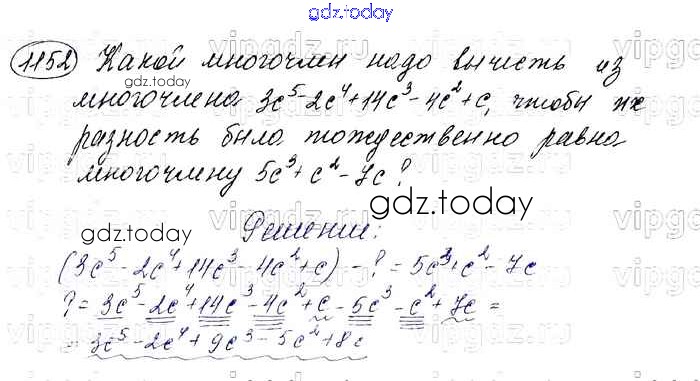 gdz.today
1152 Какой многочлен надо вычесть из
многочлена 3c⁵-2c⁴+14c³-4c²+c, чтобы их
разность была тождественно равна
многочлену 5c³+c²-7c?
gdz.today
gdz.today
Решение:
gdz.today
(3c⁵-2c⁴+14c³-4c²+c)-?=5c³+c²-7c
?=3c⁵-2c⁴+14c³-4c²+c-5c³-c²+7c=
=3c⁵-2c⁴+9c³-5c²+8c